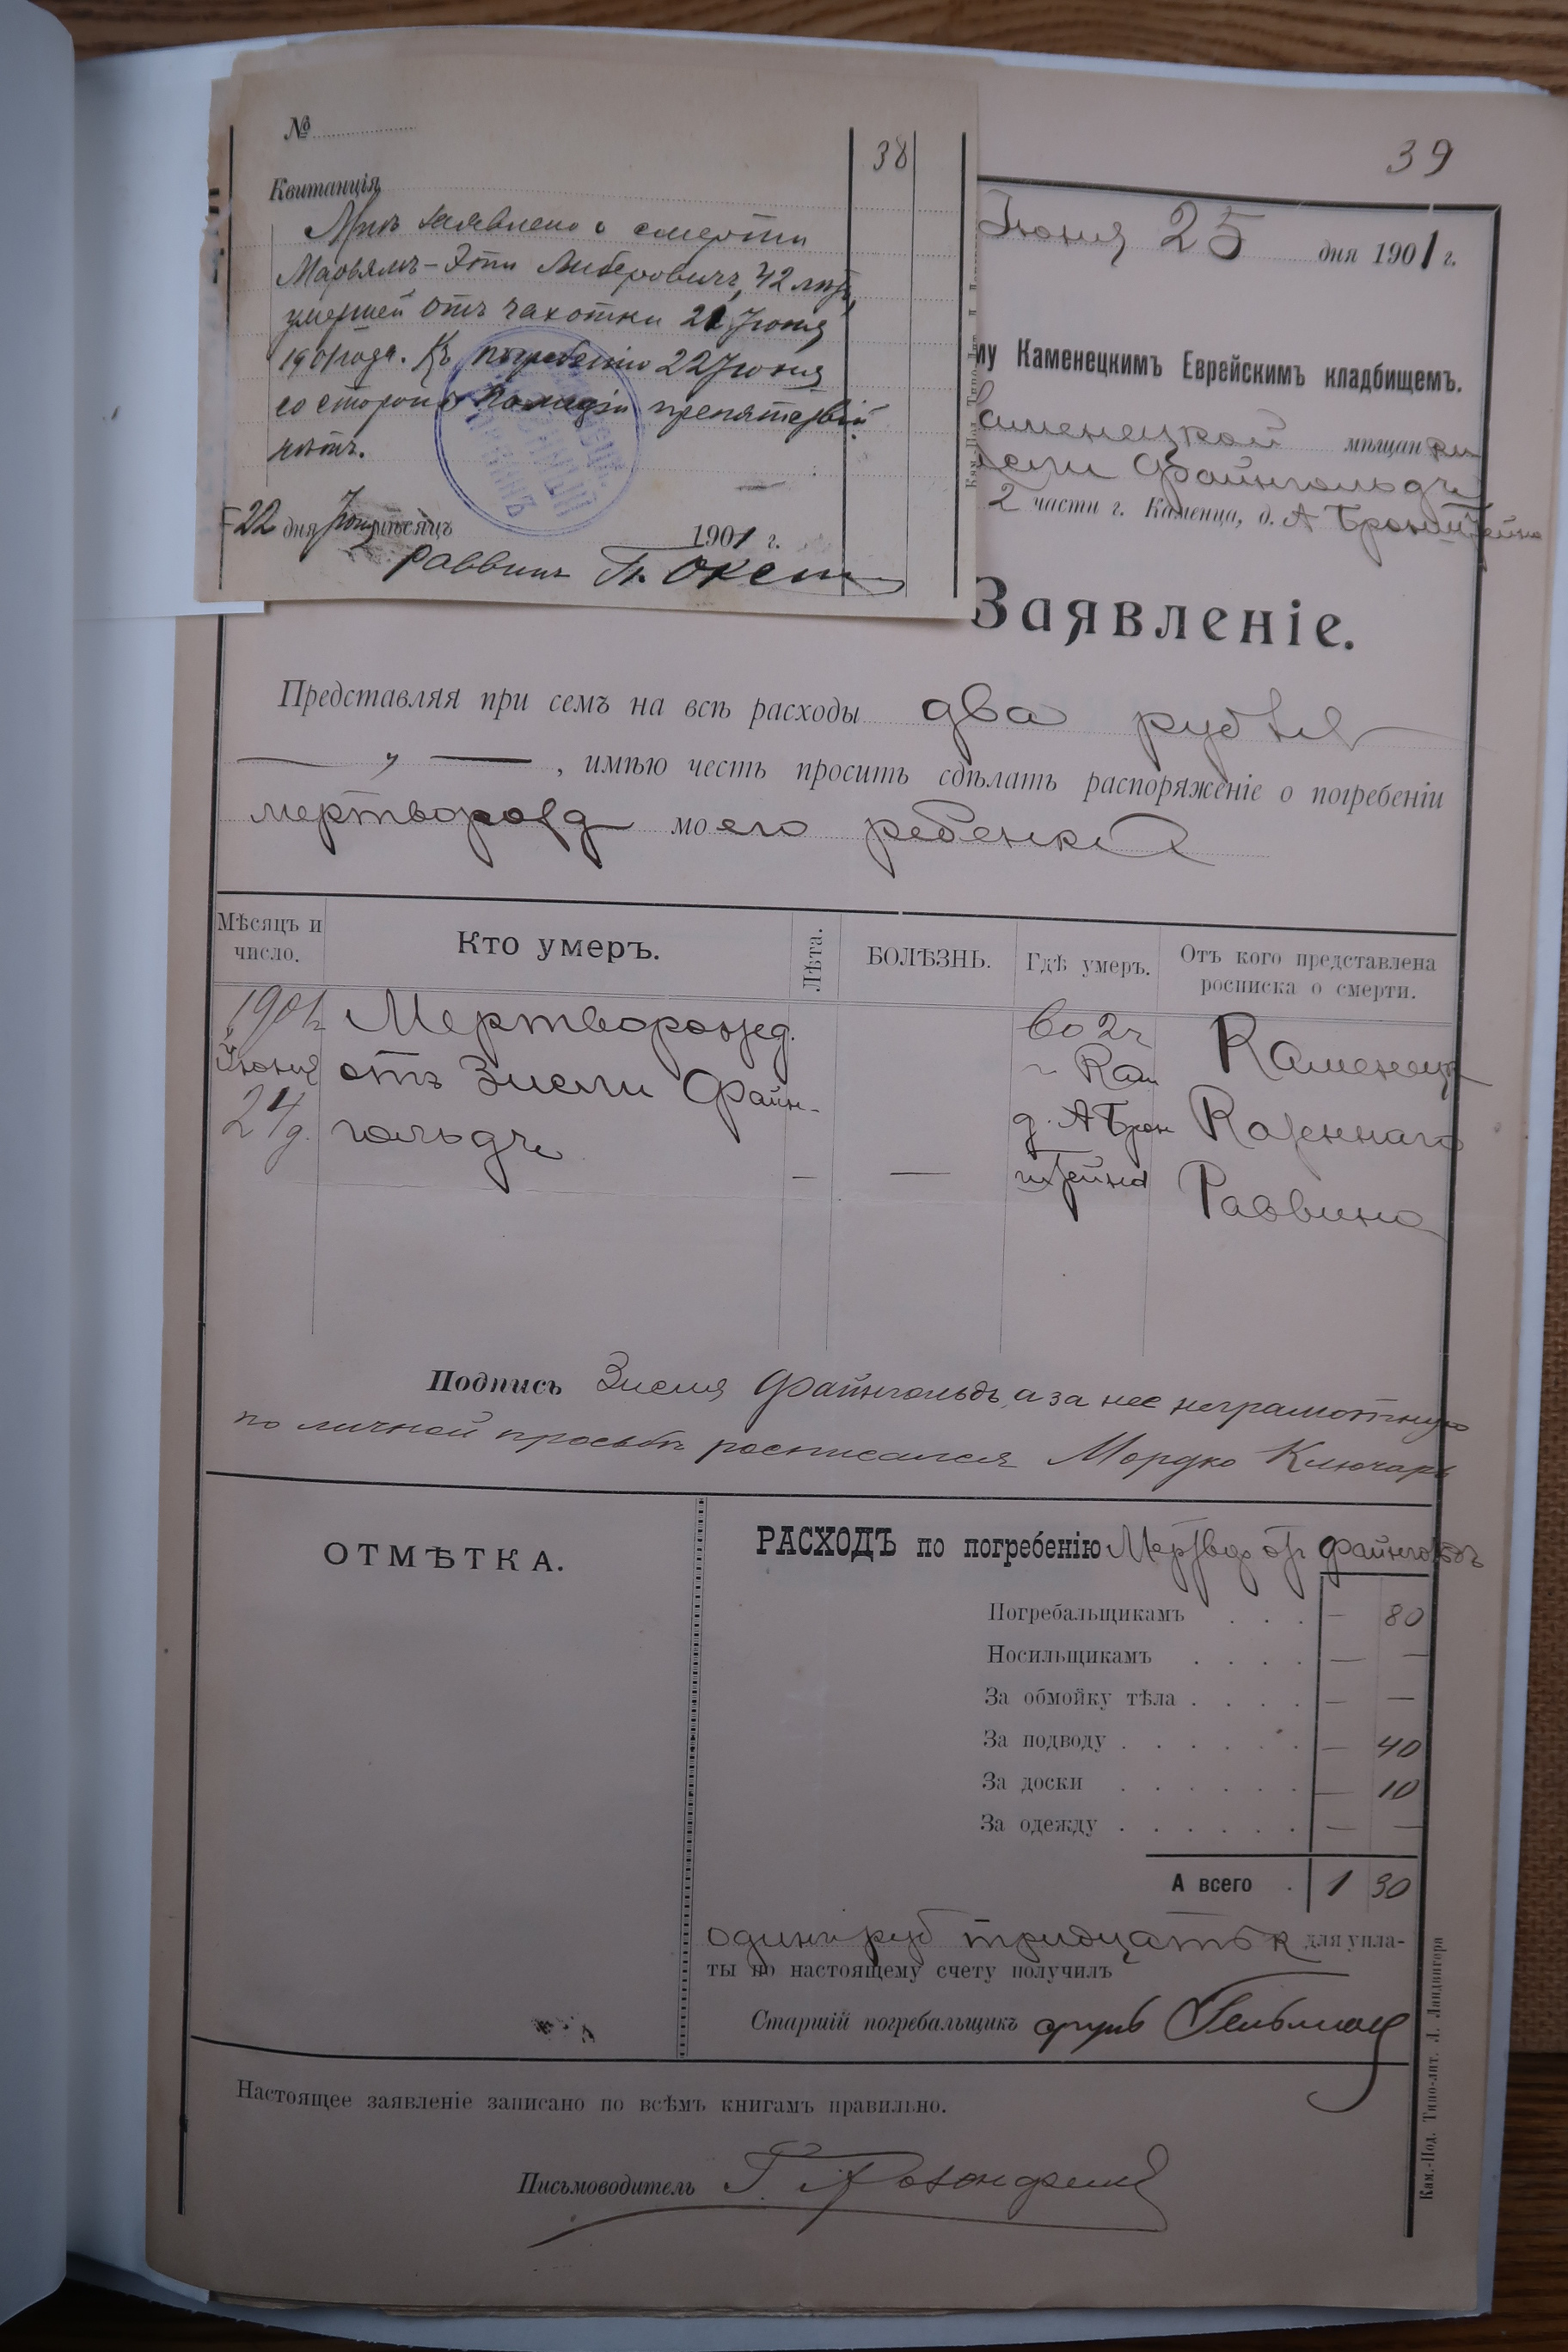 №
38
Квитанція
Мнѣ заявлено о смерти
Марьямъ-Эти Либеровичъ, 42 лѣтъ,
умершей отъ чахотки 21 Іюня
1901 года. Къ погребенію 22 Іюня
со стороны полиціи препятствій
нѣтъ.
22 дня Іюня мѣсяцъ 1901 г.
Раввинъ
39
Іюня 25 дня 1901 г.
му Каменецкимъ Еврейскимъ кладбищемъ.
аменецкой мѣщанки
сли Файнгольдъ
2 части г. Каменца, д. А Бронштейна
Заявленіе.
Представляя при семъ на всѣ расходы два рубля
— „ — , имѣю честь просить сдѣлать распоряженіе о погребеніи
мертворожд моего ребенка
Мѣсяцъ и число.
Кто умеръ.
Лѣта.
БОЛѢЗНЬ.
Гдѣ умеръ.
Отъ кого представлена росписка о смерти.
1901 г.
Іюня
24 д.
Мертворожд.
отъ Зисли Файн-
гольдъ
—
—
во 2 ч
г Кам
д. А Брон
штейна
Каменецк
Казеннаго
Раввина
Подпись Зисля Файнгольдъ, а за нее неграмотную
по личной просьбѣ росписался Мордко Ключарь
ОТМѢТКА.
РАСХОДЪ по погребенію Мертвор отъ Файнгольдъ
Погребальщикамъ . . . — 80
Носильщикамъ . . . . — —
За обмойку тѣла . . . . — —
За подводу . . . . . . — 40
За доски . . . . . . — 10
За одежду . . . . . . — —
А всего . 1 30
одинъ руб тридцать к для упла-
ты по настоящему счету получилъ
Старшій погребальщикъ
Настоящее заявленіе записано по всѣмъ книгамъ правильно.
Письмоводитель
Кам.-Под. Типо-лит. Л. Ландвигера